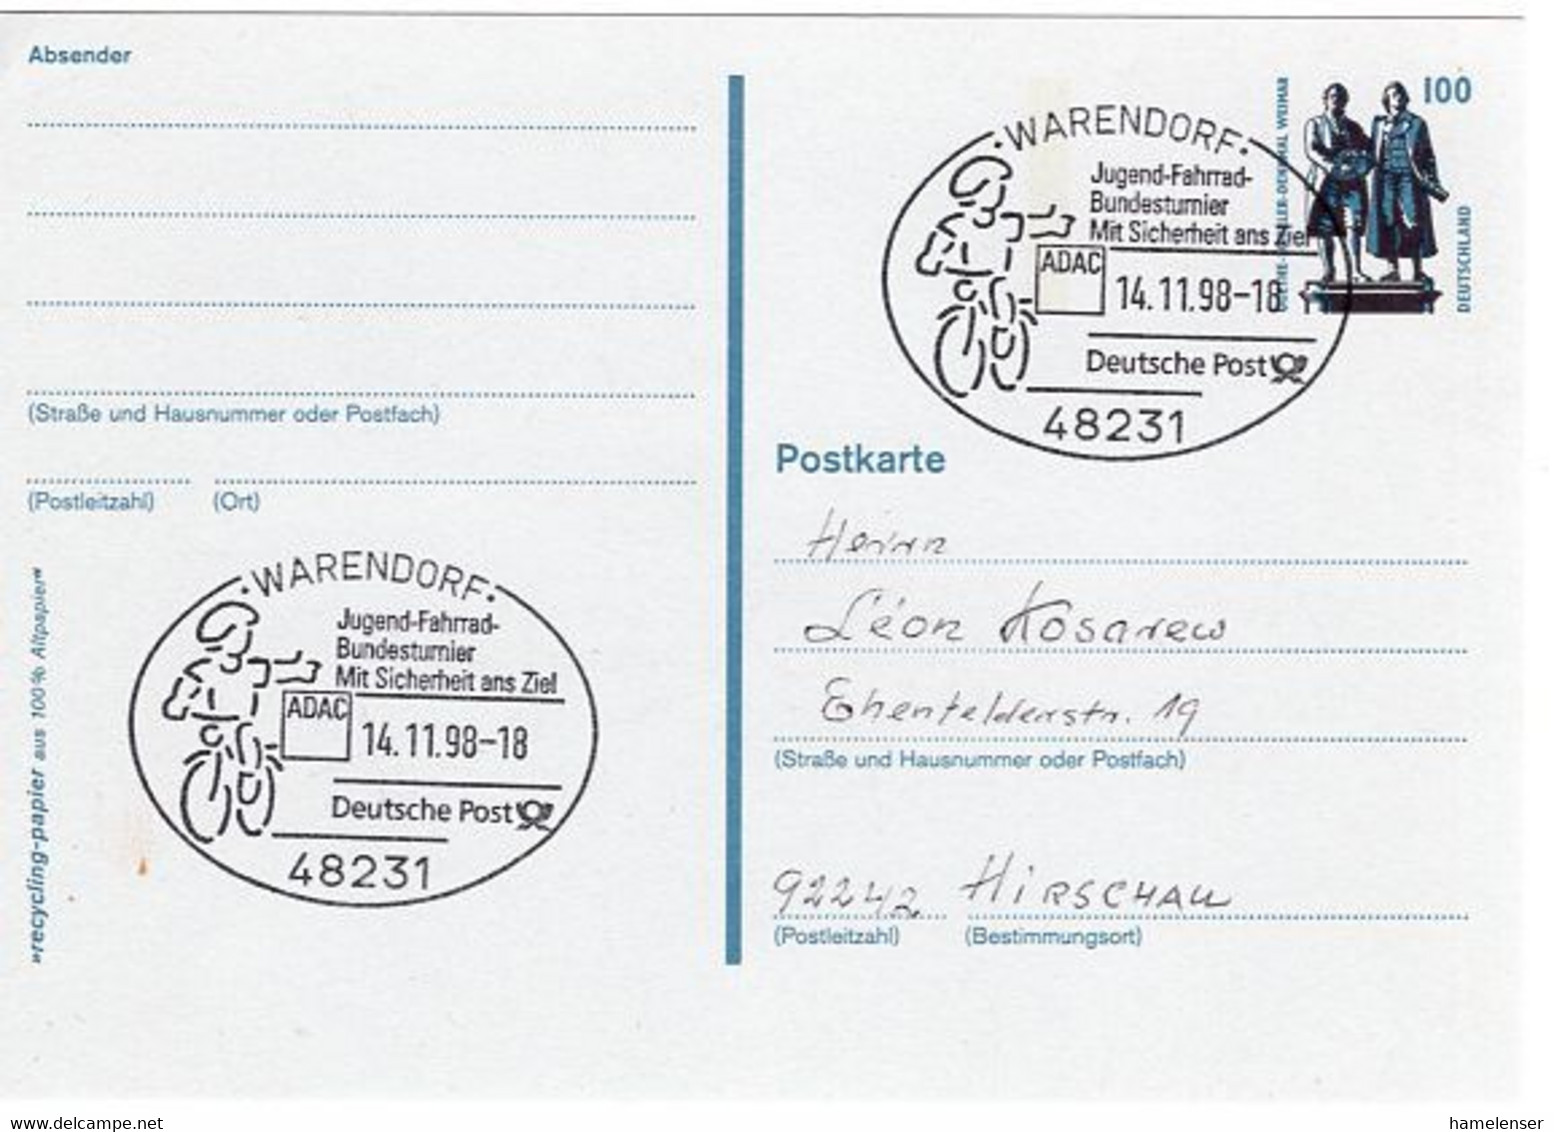 Absender
(Straße und Hausnummer oder Postfach)
(Postleitzahl) (Ort)
»recycling-papier aus 100% Altpapier«
·WARENDORF·
Jugend-Fahrrad-
Bundesturnier
Mit Sicherheit ans Ziel
ADAC
14.11.98-18
Deutsche Post
48231
100
GOETHE-SCHILLER-DENKMAL WEIMAR
DEUTSCHLAND
·WARENDORF·
Jugend-Fahrrad-
Bundesturnier
Mit Sicherheit ans Ziel
ADAC
14.11.98-18
Deutsche Post
48231
Postkarte
Herrn
Léon Kosarew
Ehenfelderstr. 19
(Straße und Hausnummer oder Postfach)
92242 HIRSCHAU
(Postleitzahl) (Bestimmungsort)
www.delcampe.net
hamelenser